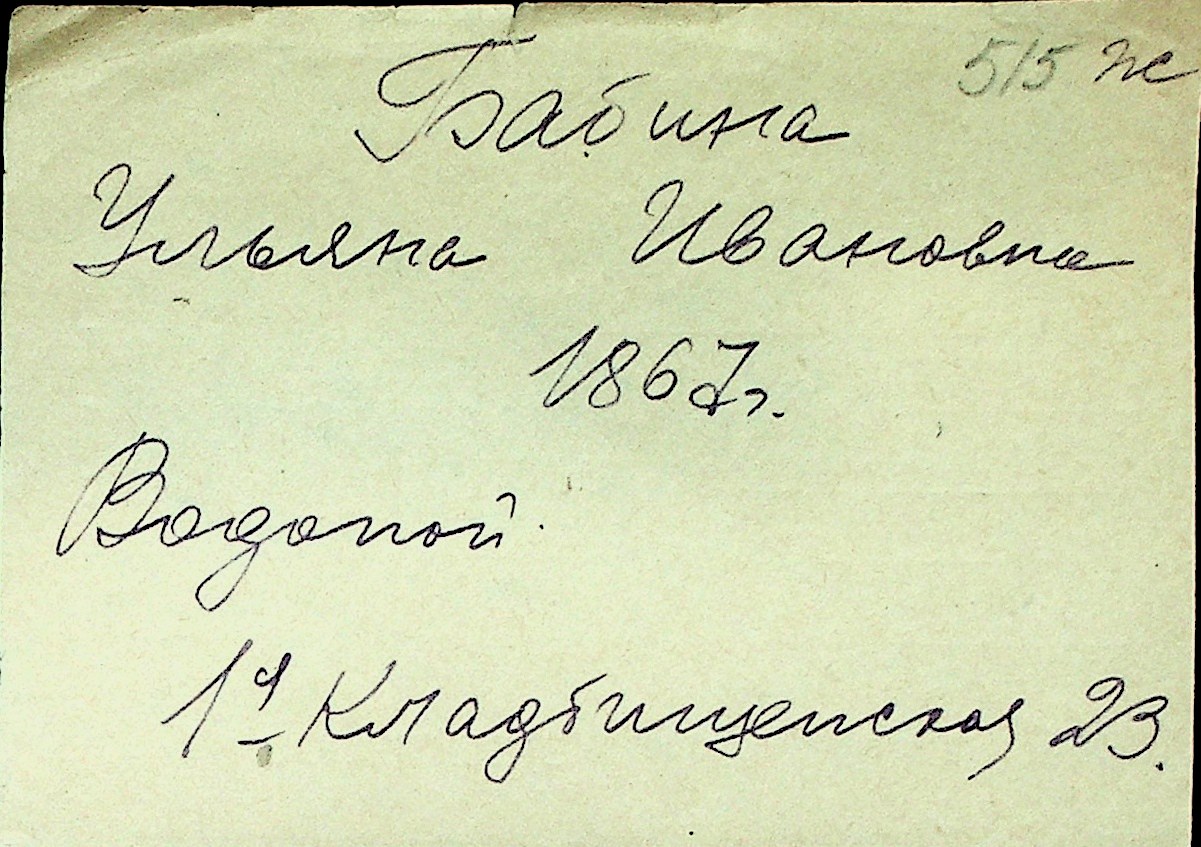 515 ж
Бабина
Ульяна Ивановна
1867г.
Водопой
1я Кладбищенская 23.